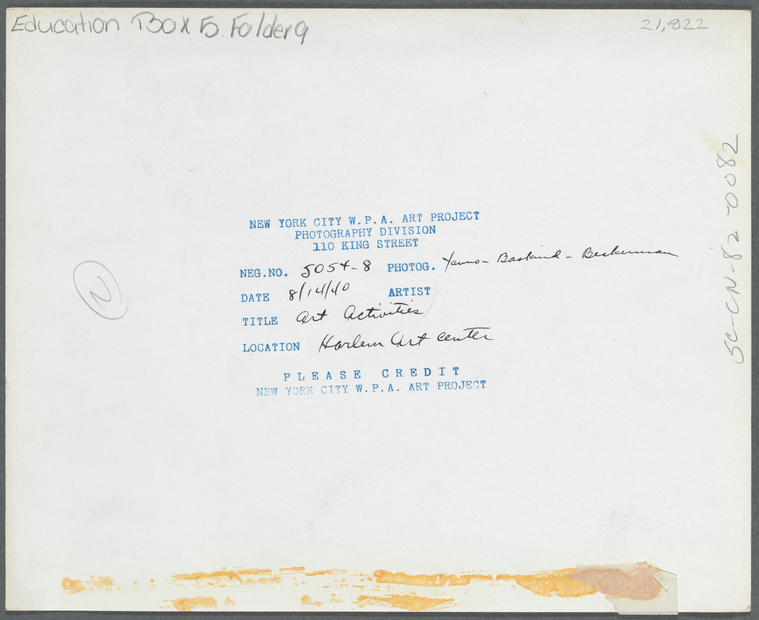 Education Box 5 Folder 9
21,822
NEW YORK CITY W.P.A. ART PROJECT
PHOTOGRAPHY DIVISION
110 KING STREET
NEG.NO. 5054-8 PHOTOG. Yavno - Bastand - Beckerman
DATE 8/14/40 ARTIST
TITLE Art Activities
LOCATION Harlem Art center
PLEASE CREDIT
NEW YORK CITY W.P.A. ART PROJECT
N
SC-CN-82-0082